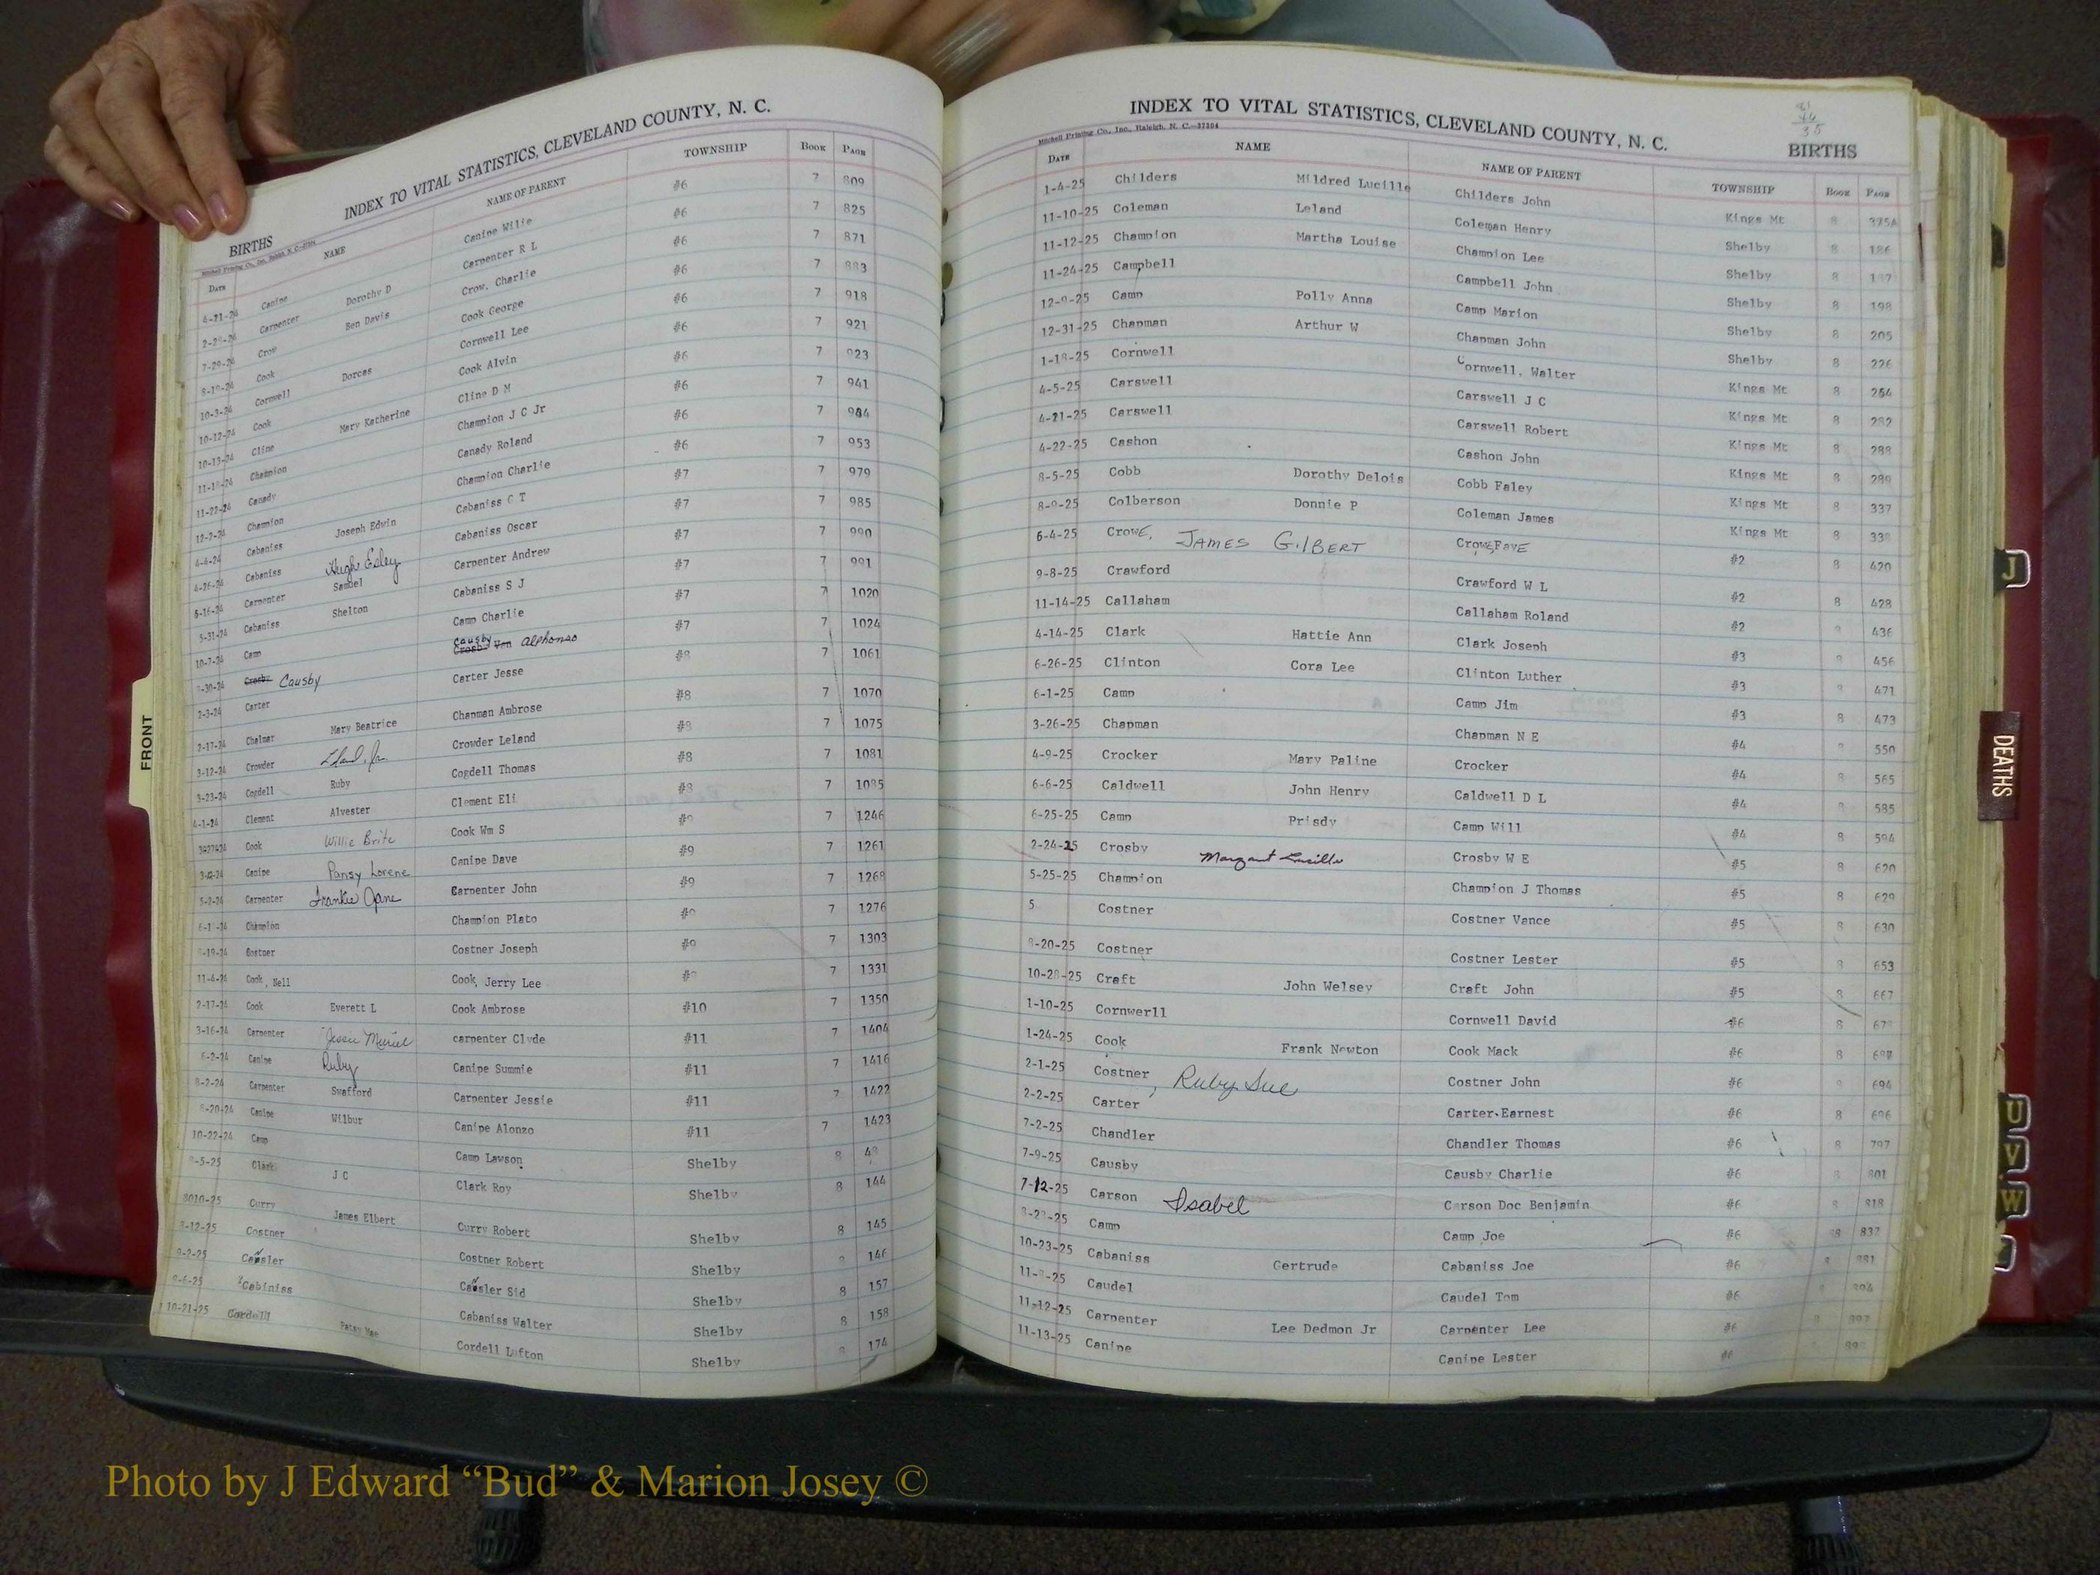 INDEX TO VITAL STATISTICS, CLEVELAND COUNTY, N. C.
BIRTHS
DATE NAME NAME OF PARENT TOWNSHIP BOOK PAGE
4-21-24 Canipe Dorothy D Canipe Wilie #6 7 809
Carpenter Ben Davis Carpenter R L #6 7 825
7-29-24 Crow Crow, Charlie #6 7 871
Cook Dorcas Cook George #6 7 883
10-3-24 Cornwell Cornwell Lee #6 7 918
10-12-24 Cook Mary Katherine Cook Alvin #6 7 921
10-13-24 Cline Cline D M #6 7 923
Champion Champion J C Jr #6 7 941
11-22-24 Canady Canady Roland #6 7
12-2-24 Champion Champion Charlie #6 7 953
4-4-24 Cabaniss Joseph Edwin Cabaniss C T #7 7 979
4-26-24 Cabaniss Hugh Cabaniss Oscar #7 7 985
5-16-24 Carpenter Samuel Carpenter Andrew #7 7 990
5-31-24 Cabaniss Shelton Cabaniss S J #7 7 991
10-7-24 Camp Camp Charlie #7 7 1020
Crosby Causby Causby Crosby Van Alphonso #7 7 1024
2-3-24 Carter Carter Jesse #8 7 1061
2-17-24 Chalmar Mary Beatrice Chapman Ambrose #8 7 1070
3-12-24 Crowder Crowder Leland #8 7 1075
3-23-24 Cogdell Ruby Cogdell Thomas #8 7 1081
4-1-24 Clement Alvester Clement Eli #8 7 1085
Cook Willie Brite Cook Wm S #9 7 1246
Canipe Pansy Lorene Canipe Dave #9 7 1261
5-2-24 Carpenter Frankie Jane Carpenter John #9 7 1268
Champion Champion Plato #9 7 1276
Costner Costner Joseph #9 7 1303
11-4-24 Cook, Nell Cook, Jerry Lee #9 7 1331
2-17-24 Cook Everett L Cook Ambrose #10 7 1350
3-16-24 Carpenter Jessie Muriel carpenter Clyde #11 7 1404
6-2-24 Canipe Ruby Canipe Summie #11 7 1416
8-2-24 Carpenter Swafford Carpenter Jessie #11 7 1422
8-20-24 Canipe Wilbur Canipe Alonzo #11 7 1423
10-22-24 Camp Camp Lawson Shelby 8
Clark J C Clark Roy Shelby 8 144
8010-25 Curry James Elbert Curry Robert Shelby 8 145
Costner Costner Robert Shelby 8 146
9-2-25 Cansler Cansler Sid Shelby 8 157
Cabiniss Cabaniss Walter Shelby 8 158
10-21-25 Cordell Patsy Mae Cordell Lufton Shelby 8 174
INDEX TO VITAL STATISTICS, CLEVELAND COUNTY, N. C.
Mitchell Printing Co., Inc., Raleigh, N. C.—37304
BIRTHS
DATE NAME NAME OF PARENT TOWNSHIP BOOK PAGE
1-4-25 Childers Mildred Lucille Childers John Kings Mt 8 375A
11-10-25 Coleman Leland Coleman Henry Shelby 8 186
11-12-25 Champion Martha Louise Champion Lee Shelby 8 187
11-24-25 Campbell Campbell John Shelby 8 198
12-9-25 Camp Polly Anna Camp Marion Shelby 8 205
12-31-25 Chapman Arthur W Chapman John Shelby 8 226
1-18-25 Cornwell Cornwell, Walter Kings Mt 8 254
4-5-25 Carswell Carswell J C Kings Mt 8 282
4-21-25 Carswell Carswell Robert Kings Mt 8 288
4-22-25 Cashon Cashon John Kings Mt 8 289
8-5-25 Cobb Dorothy Delois Cobb Faley Kings Mt 8 337
8-9-25 Colberson Donnie P Coleman James Kings Mt 8 338
6-4-25 CroWE, JAMES GILBERT Crowe FAYE #2 8 420
9-8-25 Crawford Crawford W L #2 8 428
11-14-25 Callaham Callaham Roland #2 8 436
4-14-25 Clark Hattie Ann Clark Joseph #3 8 456
6-26-25 Clinton Cora Lee Clinton Luther #3 8 471
6-1-25 Camp Camp Jim #3 8 473
3-26-25 Chapman Chapman N E #4 8 550
4-9-25 Crocker Mary Paline Crocker #4 8 565
6-6-25 Caldwell John Henry Caldwell D L #4 8 585
6-25-25 Camp Prisdy Camp Will #4 8 594
2-24-25 Crosby Margaret Lucille Crosby W E #5 8 620
5-25-25 Champion Champion J Thomas #5 8 629
5 Costner Costner Vance #5 8 630
8-20-25 Costner Costner Lester #5 8 653
10-28-25 Craft John Welsey Craft John #5 8 667
1-10-25 Cornwerll Cornwell David #6 8
1-24-25 Cook Frank Newton Cook Mack #6 8
2-1-25 Costner, Ruby Sue Costner John #6 8 694
2-2-25 Carter Carter Earnest #6 8 696
7-2-25 Chandler Chandler Thomas #6 8 797
7-9-25 Causby Causby Charlie #6 8 801
7-12-25 Carson Isabel Carson Doc Benjamin #6 8 818
Camp Camp Joe #6 8 837
10-23-25 Cabaniss Gertrude Cabaniss Joe #6 8 881
Caudel Caudel Tom #6 8 894
11-12-25 Carpenter Lee Dedmon Jr Carpenter Lee #6 8 897
11-13-25 Canipe Canipe Lester #6
FRONT
J
DEATHS
U
V
W
Photo by J Edward “Bud” & Marion Josey ©